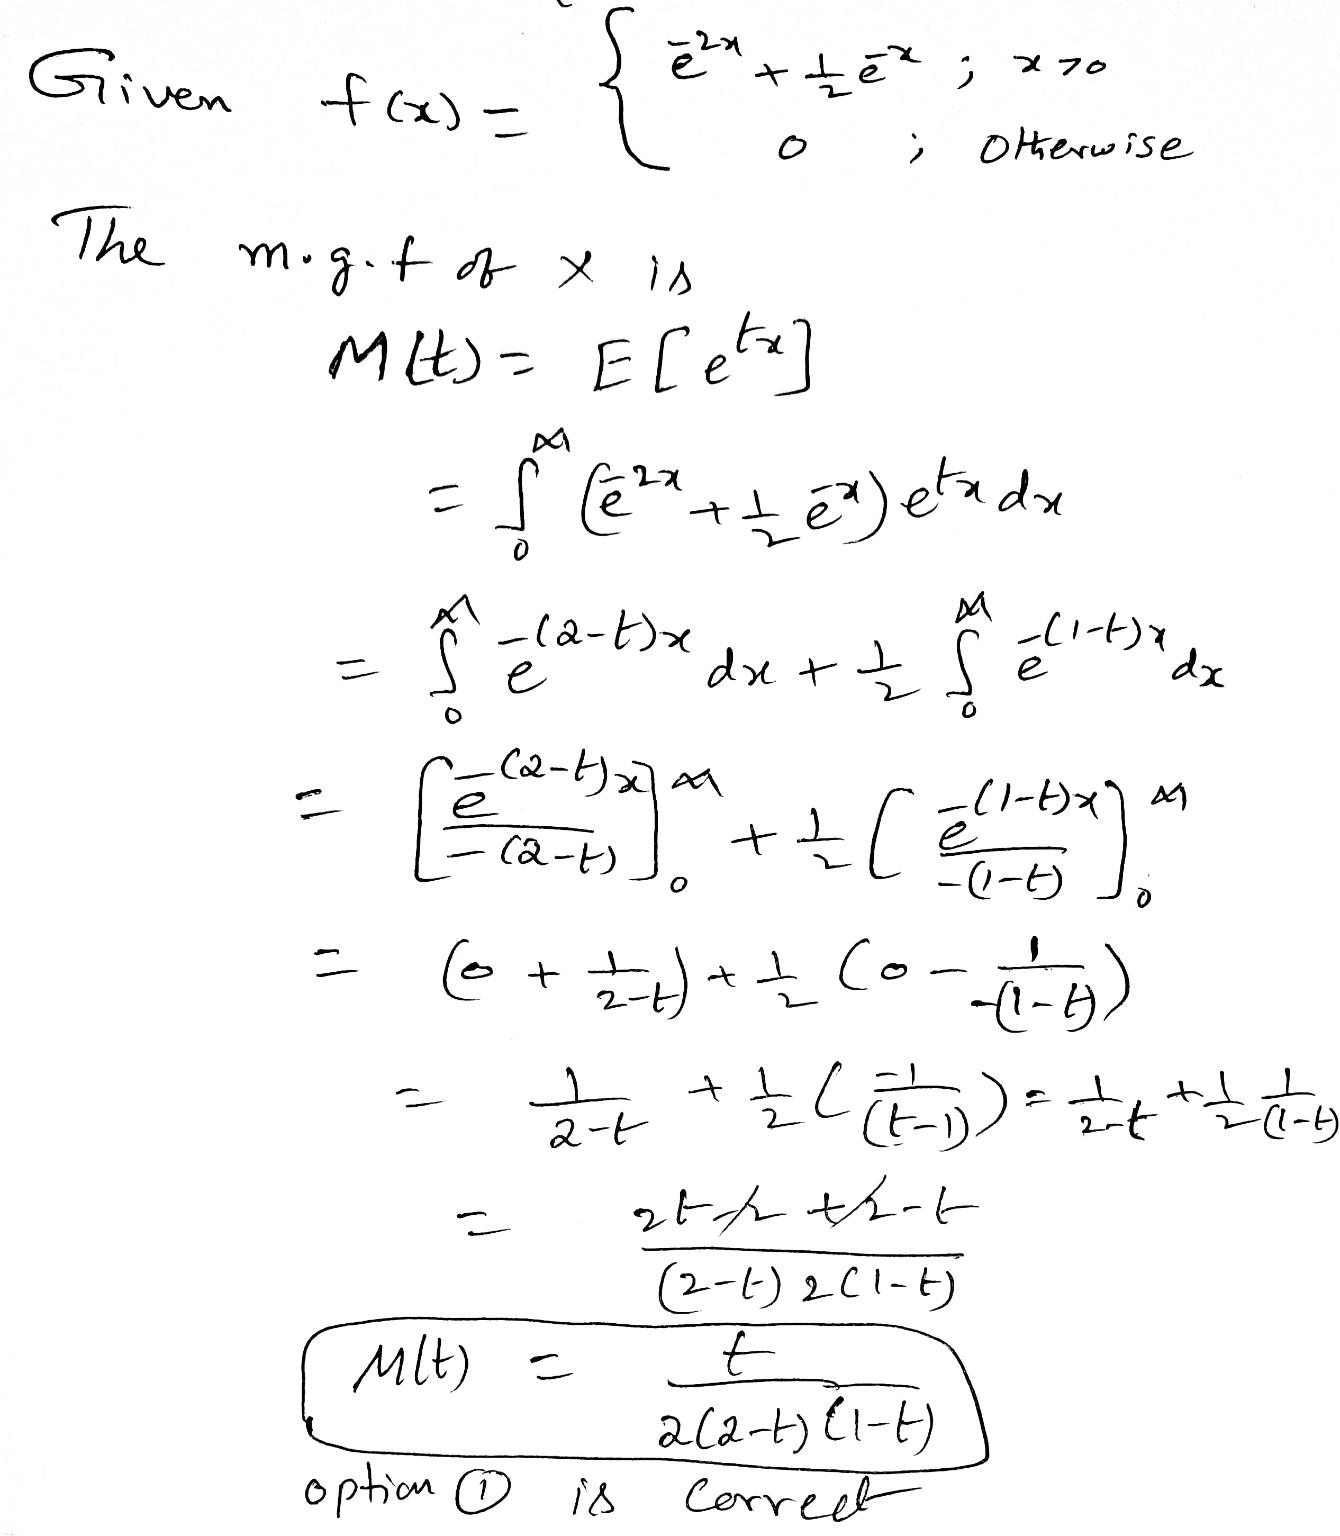 Given f(x) = { e^-2x + 1/2 e^-x ; x>0
0 ; otherwise
The m.g.f of x is
M(t) = E[e^tx]
= ∫_0^∞ (e^-2x + 1/2 e^-x) e^tx dx
= ∫_0^∞ e^-(2-t)x dx + 1/2 ∫_0^∞ e^-(1-t)x dx
= [e^-(2-t)x / -(2-t)]_0^∞ + 1/2 [e^-(1-t)x / -(1-t)]_0^∞
= (0 + 1/(2-t)) + 1/2 (0 - 1/(-(1-t)))
= 1/(2-t) + 1/2 (-1/(t-1)) = 1/(2-t) + 1/2 1/(1-t)
= (2t-2+2-t) / ((2-t) 2(1-t))
M(t) = t / (2(2-t)(1-t))
option ① is correct